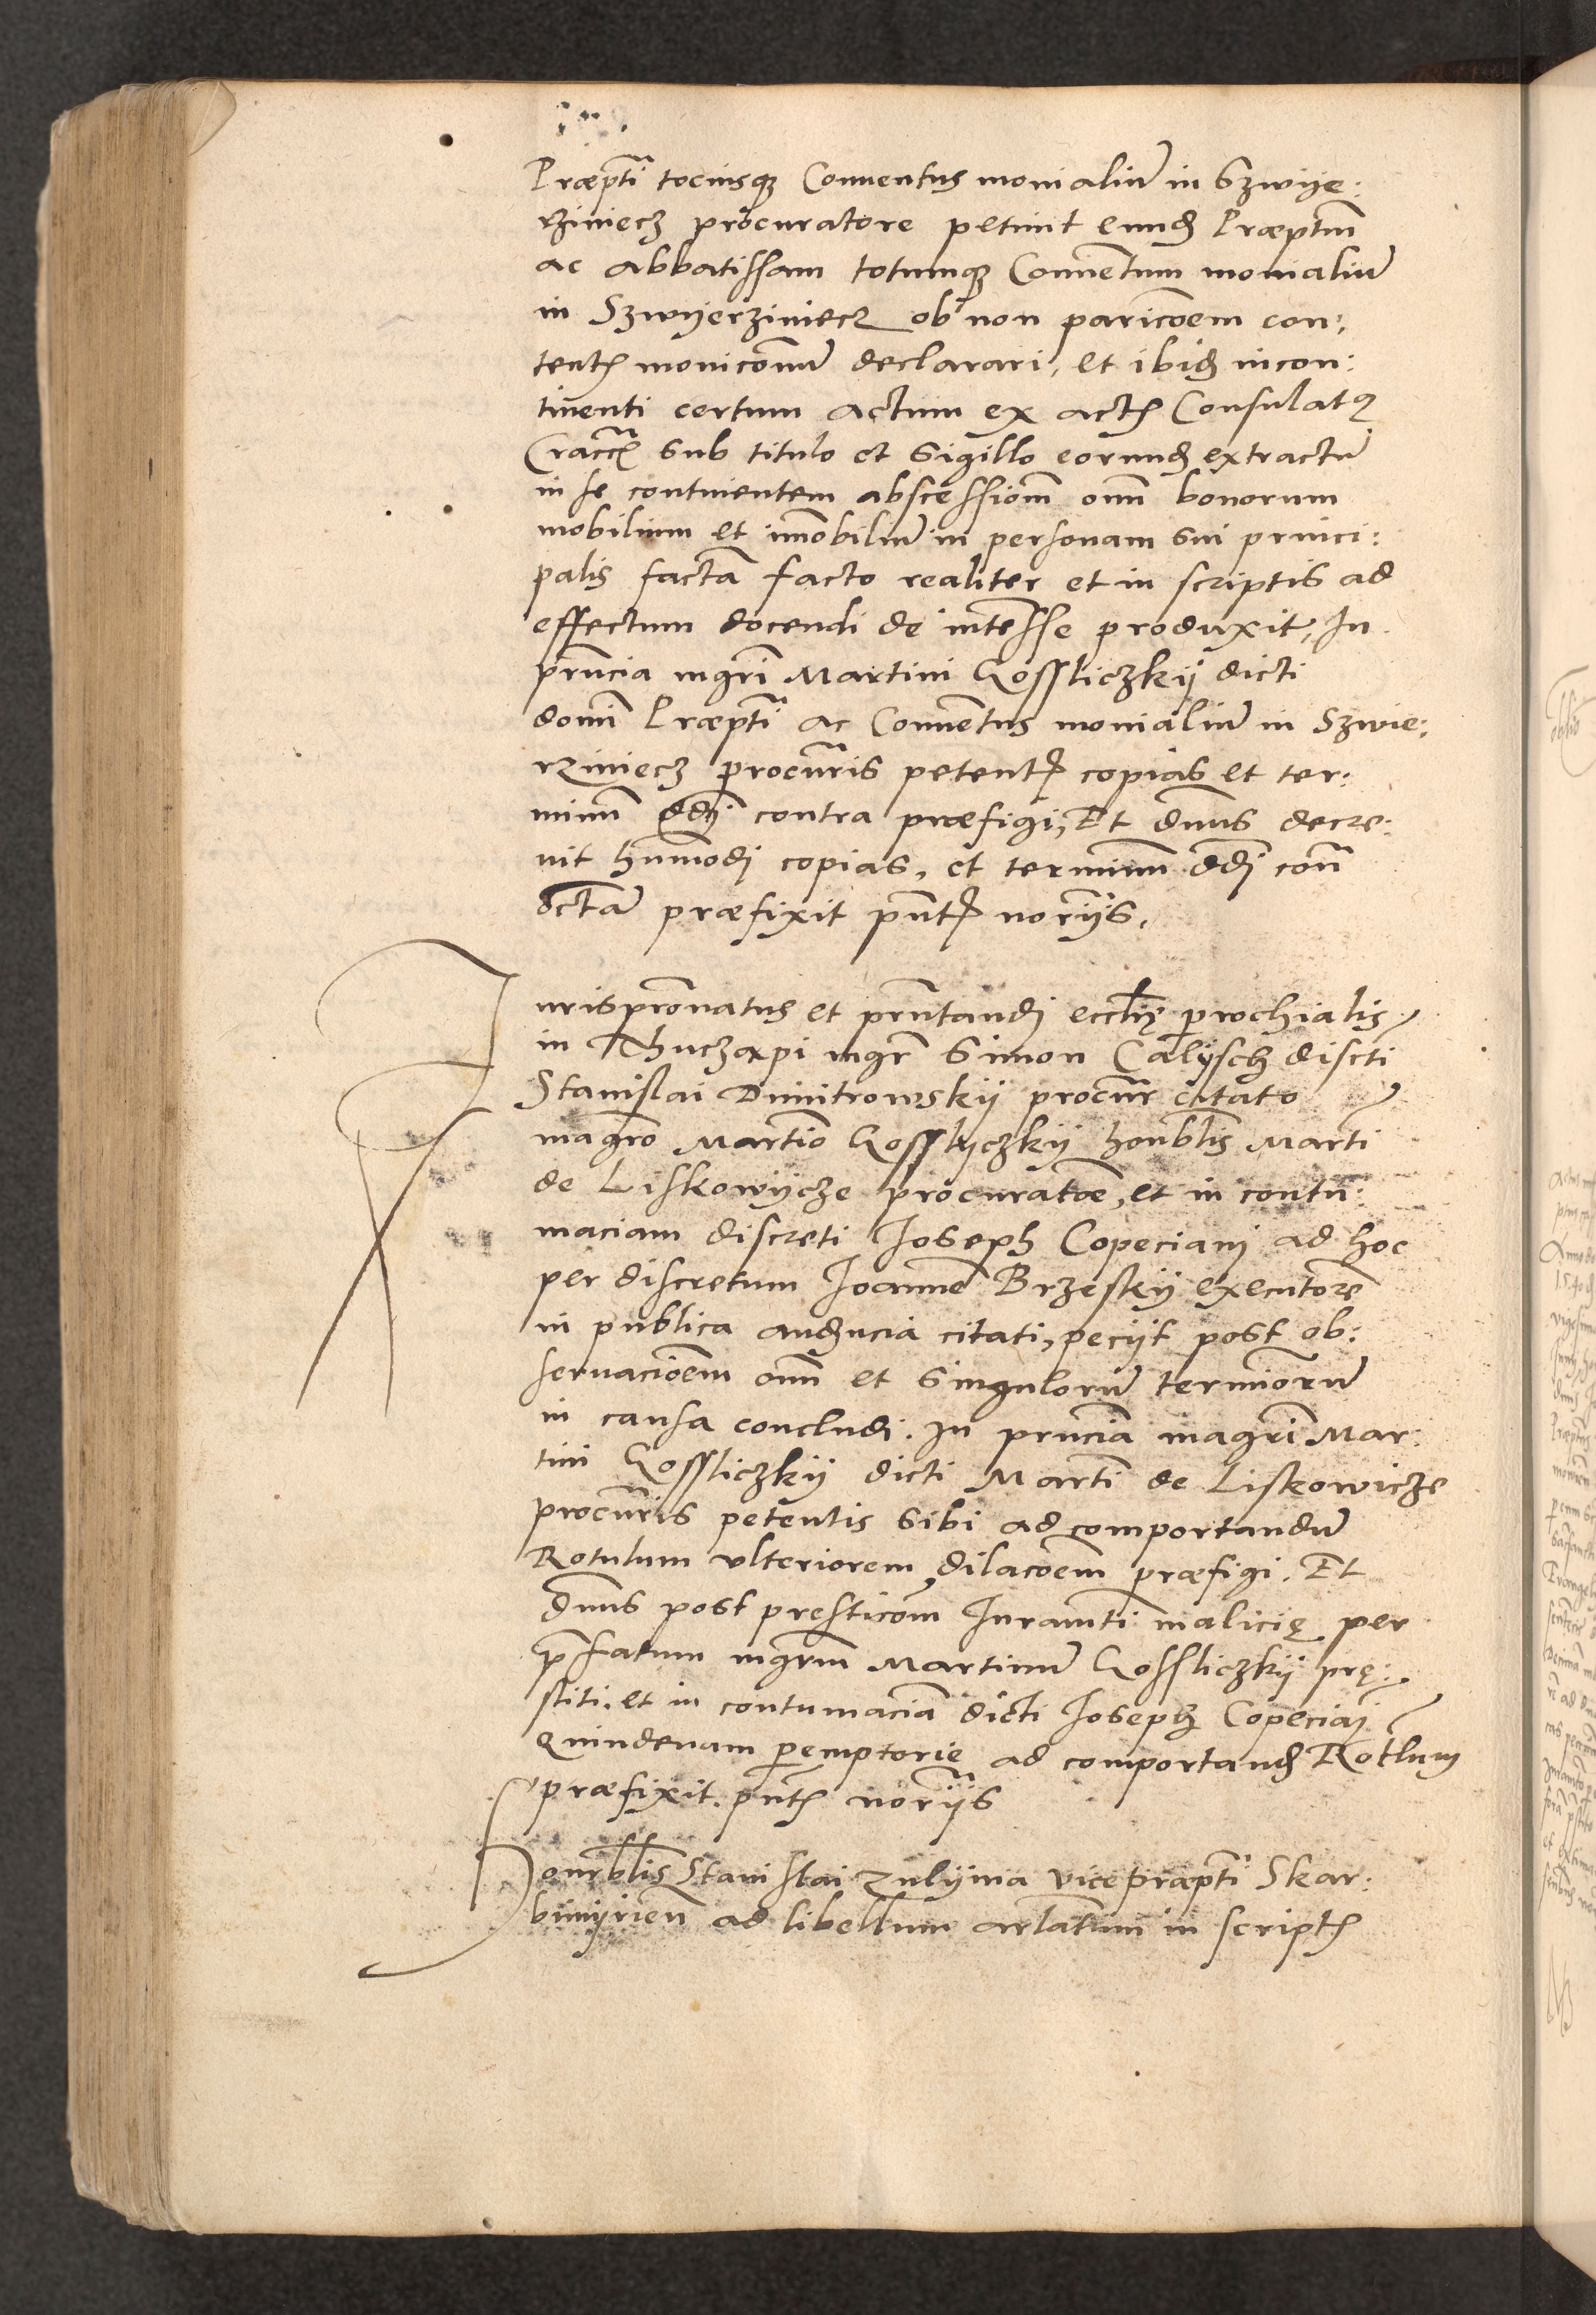 Præpti tociusq Conuentus monialiu in Szwye:
rziniecz procuratore petiuit eund Præptum
ac abbatissam totumq Conuentum monialiu
in Szwyerziniecz ob non paricoem con:
tent monicomu declarari, et ibid incon:
tinenti certum actum ex act Consulatus
Cracc sub titulo et sigillo eorund extractu
in se continentem abscessiom omn bonorum
mobilium et imobiliu in personam sui princi:
palis facta facto realiter et in scriptis ad
effectum docendi de interesse produxit, In
pruncia mgri Martini Gossliczkij dicti
domi Præpti ac Conuentus monialiu in Szwie:
rziniecz procuris petent copias et ter:
minu ddj contra præfigi, Et dnus decre:
uit hmodj copias, et terminum ddj con
octa præfixit pnt noriis.
Jurispronatus et pntandj ecclię prochialis
in Thuczapi mgr Simon Calysch discti
Stanislai Dmitrowskij procur citato
magro Martino Gosslyczkij honblis Marti
de Liskowycze procuratoe, et in contu:
maciam discreti Joseph Copeciani ad hoc
per discretum Joanne Brzeskij executore
in publica audiencia citati, peciit post ob:
seruacioem omn et singuloru terminoru
in causa concludj. In pruncia magri Mar:
tini Gossliczkij dicti Marti de Liskowicze
procuris petentis sibi ad comportandu
Rotulum vlteriorem dilacoem præfigi. Et
dnus post presticom Juramti malicię per
pfatum mgrm Martinu Gossliczkij pre:
stiti. et in contumacia dicti Joseph Copeciaj
Quindenam peremptorie ad comportand Rotlum
præfixit. pnt noriis
Honrablis Stanislai Zulyma vicepræpti Skar:
bimyrien ad libellum arlatum in script